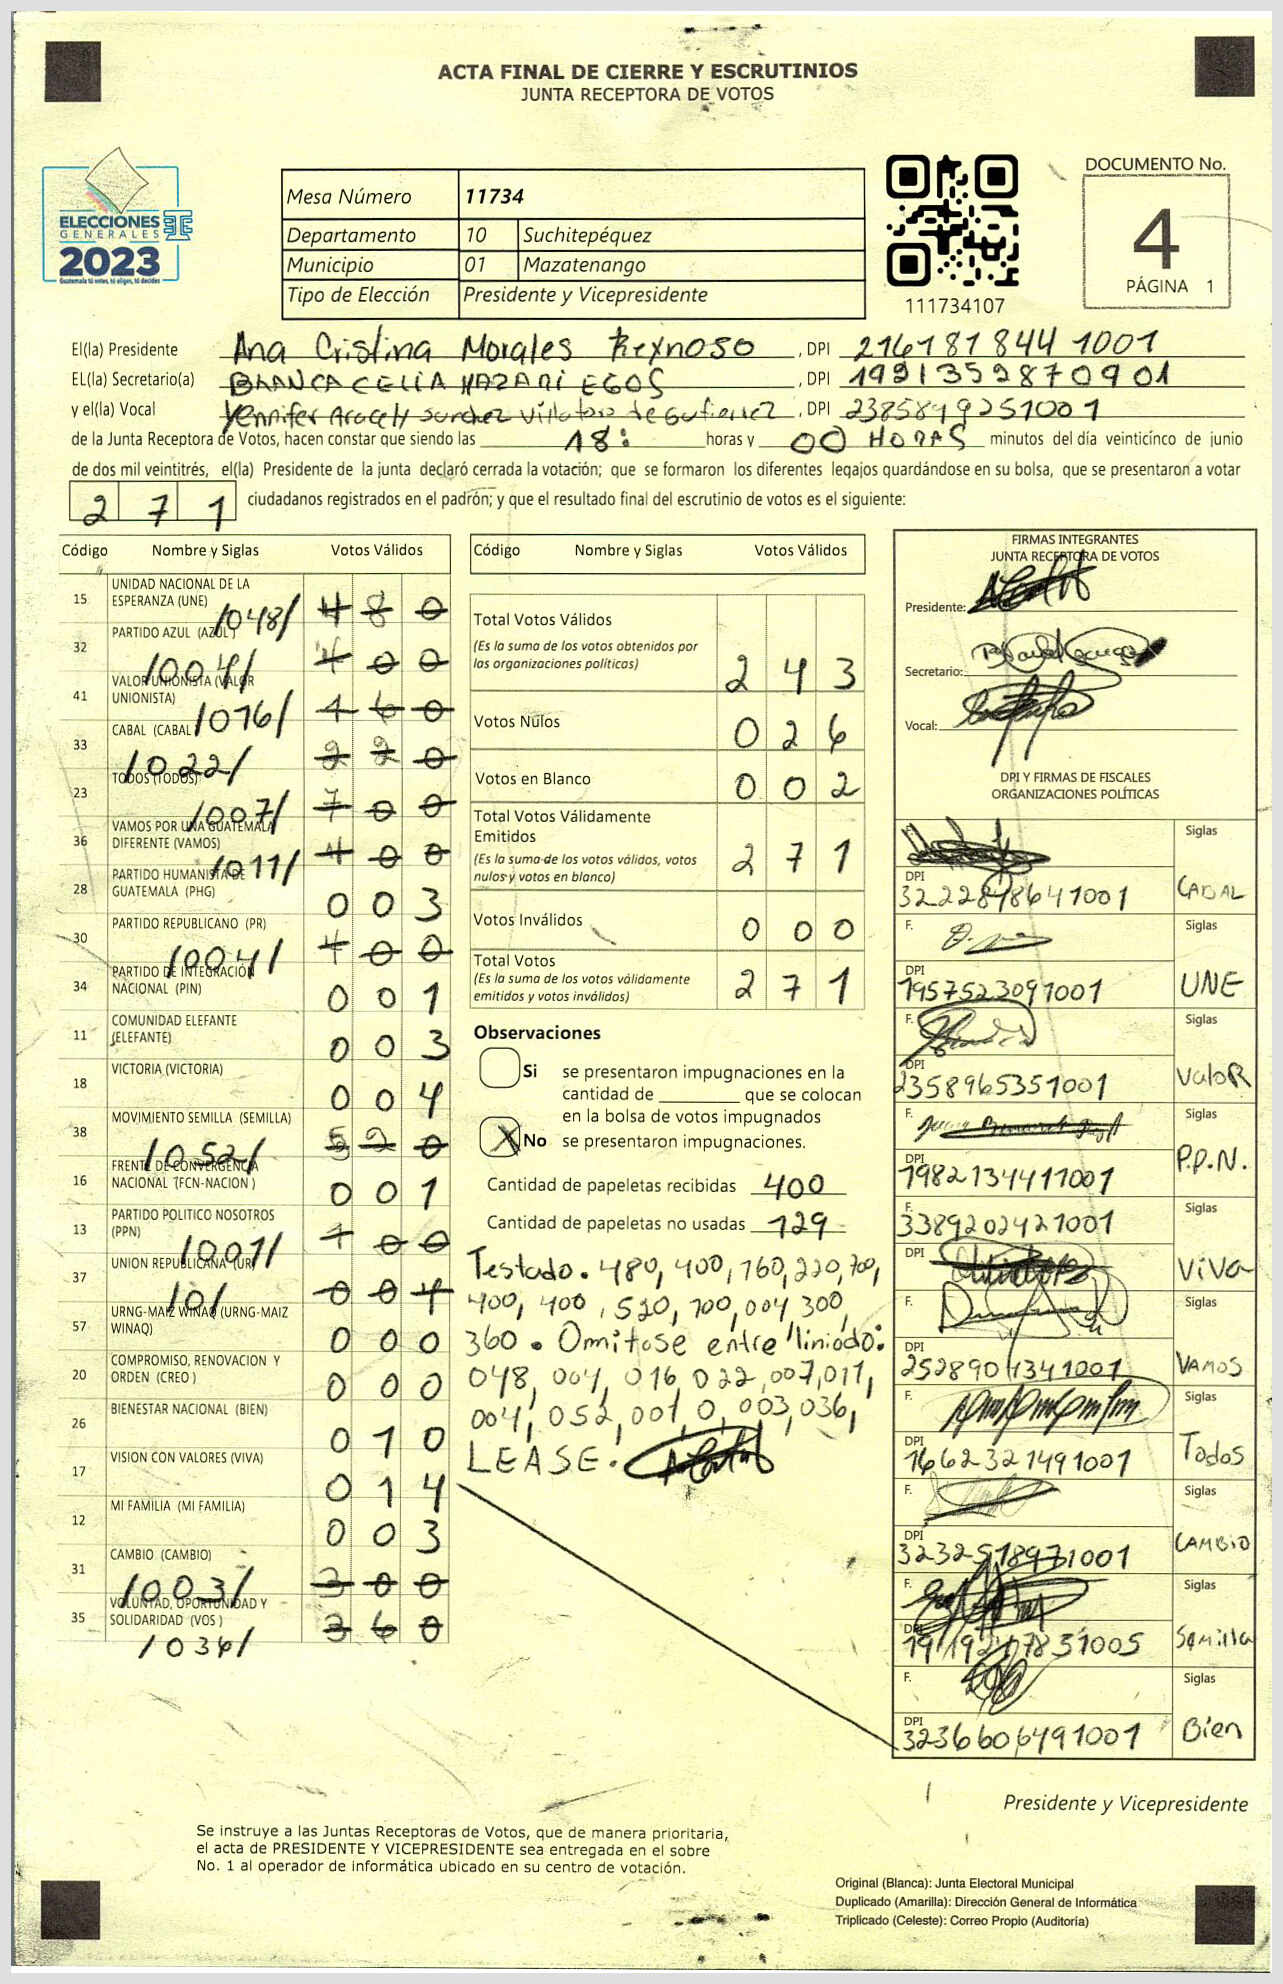 ACTA FINAL DE CIERRE Y ESCRUTINIOS
JUNTA RECEPTORA DE VOTOS
ELECCIONES
GENERALES
2023
Guatemala tú votas, tú eliges, tú decides
Mesa Número 11734
Departamento 10 Suchitepéquez
Municipio 01 Mazatenango
Tipo de Elección Presidente y Vicepresidente
111734107
DOCUMENTO No.
4
PÁGINA 1
El(la) Presidente Ana Cristina Morales Reynoso, DPI 216181844 1001
EL(la) Secretario(a) BLANCA CELIA MAZARIEGOS, DPI 1991359870901
y el(la) Vocal Yennifer Araceli Sanchez Villatoro de Gutierrez, DPI 2385849251001
de la Junta Receptora de Votos, hacen constar que siendo las 18: horas y 00 HORAS minutos del día veinticínco de junio
de dos mil veintitrés, el(la) Presidente de la junta declaró cerrada la votación; que se formaron los diferentes legajos guardándose en su bolsa, que se presentaron a votar
271 ciudadanos registrados en el padrón; y que el resultado final del escrutinio de votos es el siguiente:
Código Nombre y Siglas Votos Válidos
15 UNIDAD NACIONAL DE LA ESPERANZA (UNE) /048/ 4 8 0
32 PARTIDO AZUL (AZUL) /004/ 4 0 0
41 VALOR UNIONISTA (VALOR UNIONISTA) /016/ 1 6 0
33 CABAL (CABAL /022/ 2 2 0
23 TODOS (TODOS) /007/ 7 0 0
36 VAMOS POR UNA GUATEMALA DIFERENTE (VAMOS) /011/ 4 0 0
28 PARTIDO HUMANISTA DE GUATEMALA (PHG) 0 0 3
30 PARTIDO REPUBLICANO (PR) /004/ 4 0 0
34 PARTIDO DE INTEGRACIÓN NACIONAL (PIN) 0 0 1
11 COMUNIDAD ELEFANTE (ELEFANTE) 0 0 3
18 VICTORIA (VICTORIA) 0 0 4
38 MOVIMIENTO SEMILLA (SEMILLA) /052/ 5 2 0
16 FRENTE DE CONVERGENCIA NACIONAL (FCN-NACION ) 0 0 1
13 PARTIDO POLITICO NOSOTROS (PPN) /001/ 1 0 0
37 UNION REPUBLICANA (UR) /0/ 0 0 4
57 URNG-MAIZ WINAQ (URNG-MAIZ WINAQ) 0 0 0
20 COMPROMISO, RENOVACION Y ORDEN (CREO ) 0 0 0
26 BIENESTAR NACIONAL (BIEN) 0 1 0
17 VISION CON VALORES (VIVA) 0 1 4
12 MI FAMILIA (MI FAMILIA) 0 0 3
31 CAMBIO (CAMBIO) /003/ 3 0 0
35 VOLUNTAD, OPORTUNIDAD Y SOLIDARIDAD (VOS ) /036/ 3 6 0
Código Nombre y Siglas Votos Válidos
Total Votos Válidos 2 4 3
(Es la suma de los votos obtenidos por
las organizaciones políticas)
Votos Nulos 0 2 6
Votos en Blanco 0 0 2
Total Votos Válidamente
Emitidos 2 7 1
(Es la suma de los votos válidos, votos
nulos y votos en blanco)
Votos Inválidos 0 0 0
Total Votos 2 7 1
(Es la suma de los votos válidamente
emitidos y votos inválidos)
Observaciones
Si se presentaron impugnaciones en la
cantidad de ________ que se colocan
en la bolsa de votos impugnados
X No se presentaron impugnaciones.
Cantidad de papeletas recibidas 400
Cantidad de papeletas no usadas 129
Testado. 480, 400, 160, 220, 700,
400, 400, 520, 100, 004, 300,
360. Omitose entre liniado:
048, 004, 016, 022, 007, 011,
004, 052, 001, 0, 003, 036,
LEASE.
FIRMAS INTEGRANTES
JUNTA RECEPTORA DE VOTOS
Presidente:
Secretario:
Vocal:
DPI Y FIRMAS DE FISCALES
ORGANIZACIONES POLÍTICAS
Siglas
DPI 3222848641001 CABAL
F. Siglas
DPI 1957523091001 UNE
F. Siglas
DPI 2358965351001 Valor
F. Siglas
DPI 1982134411001 P.P.N.
F. 3389202421001 Siglas
DPI ViVa
F. Siglas
DPI 2528901341001 VAMOS
F. Siglas
DPI 1662321491001 Todos
F. Siglas
DPI 3232518971001 CAMBIO
F. Siglas
DPI 1919247831005 Semilla
F. Siglas
DPI 3236606491001 Bien
Presidente y Vicepresidente
Se instruye a las Juntas Receptoras de Votos, que de manera prioritaria,
el acta de PRESIDENTE Y VICEPRESIDENTE sea entregada en el sobre
No. 1 al operador de informática ubicado en su centro de votación.
Original (Blanca): Junta Electoral Municipal
Duplicado (Amarilla): Dirección General de Informática
Triplicado (Celeste): Correo Propio (Auditoría)